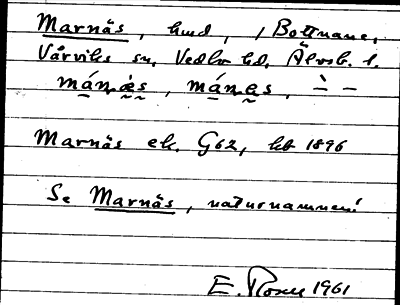 Marnäs, hmd, i Bottnane,
Vårviks sn, Vedbo hd, Älvsb. l.
mánæs, mánes,
Marnäs ek. G62, kb 1896
Se Marnäs, naturnamnen!
E. Rosen 1961